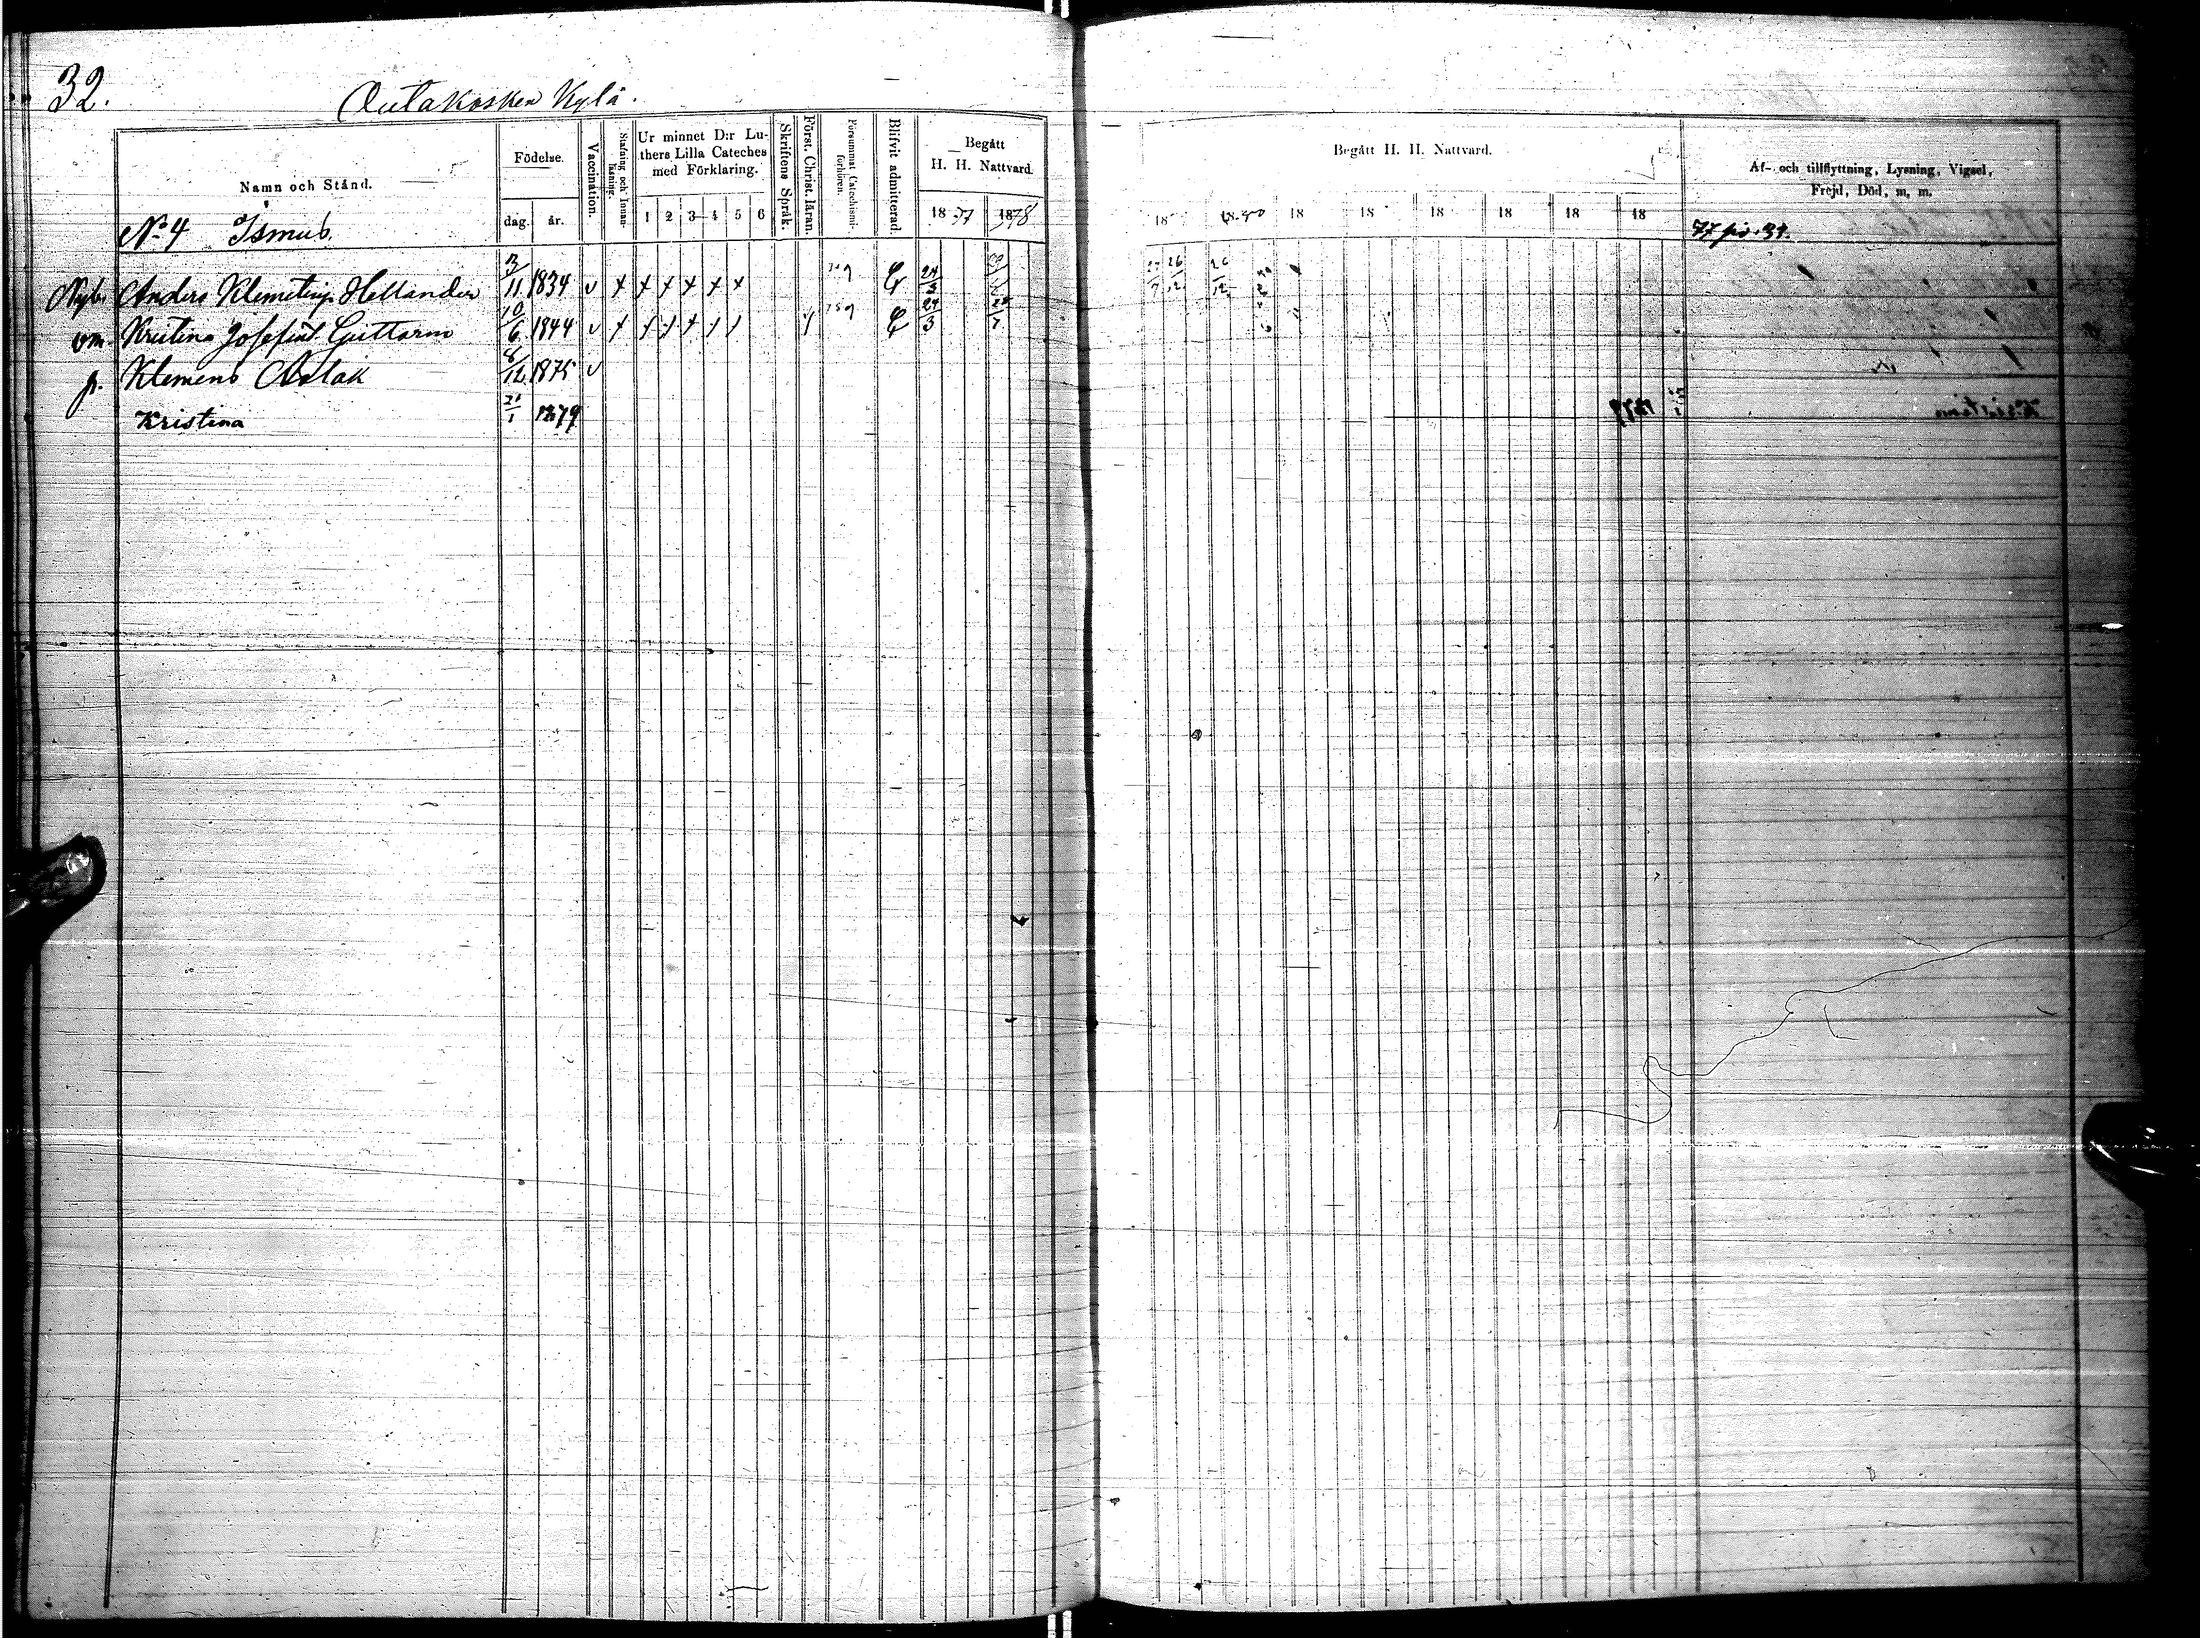 32.
Outakosken Kylä.
Namn och Stånd.
Födelse.
dag. år.
Vaccination.
Stafning och Innanläsning.
Ur minnet D:r Luthers Lilla Cateches med Förklaring.
1 2 3 4 5 6
Skriftens Språk.
Först. Christ. läran.
Försummat Catechismiförhören.
Blifvit admitterad.
Begått
H. H. Nattvard.
1877 1878
Begått H. H. Nattvard.
18 18 80 18 18 18 18 18 18
Af- och tillflyttning, Lysning, Vigsel,
Frejd, Död, m. m.
No 4 Ismus.
Nyb. Anders Klemetinp. Hellander 3/11 1834 v x x x x x x 24/3
om Kristina Josefint. Guttorm 10/6 1844 v x x x x 24/3
p. Klemens Aslak 8/12 1875 v
Kristina 21/1 1879